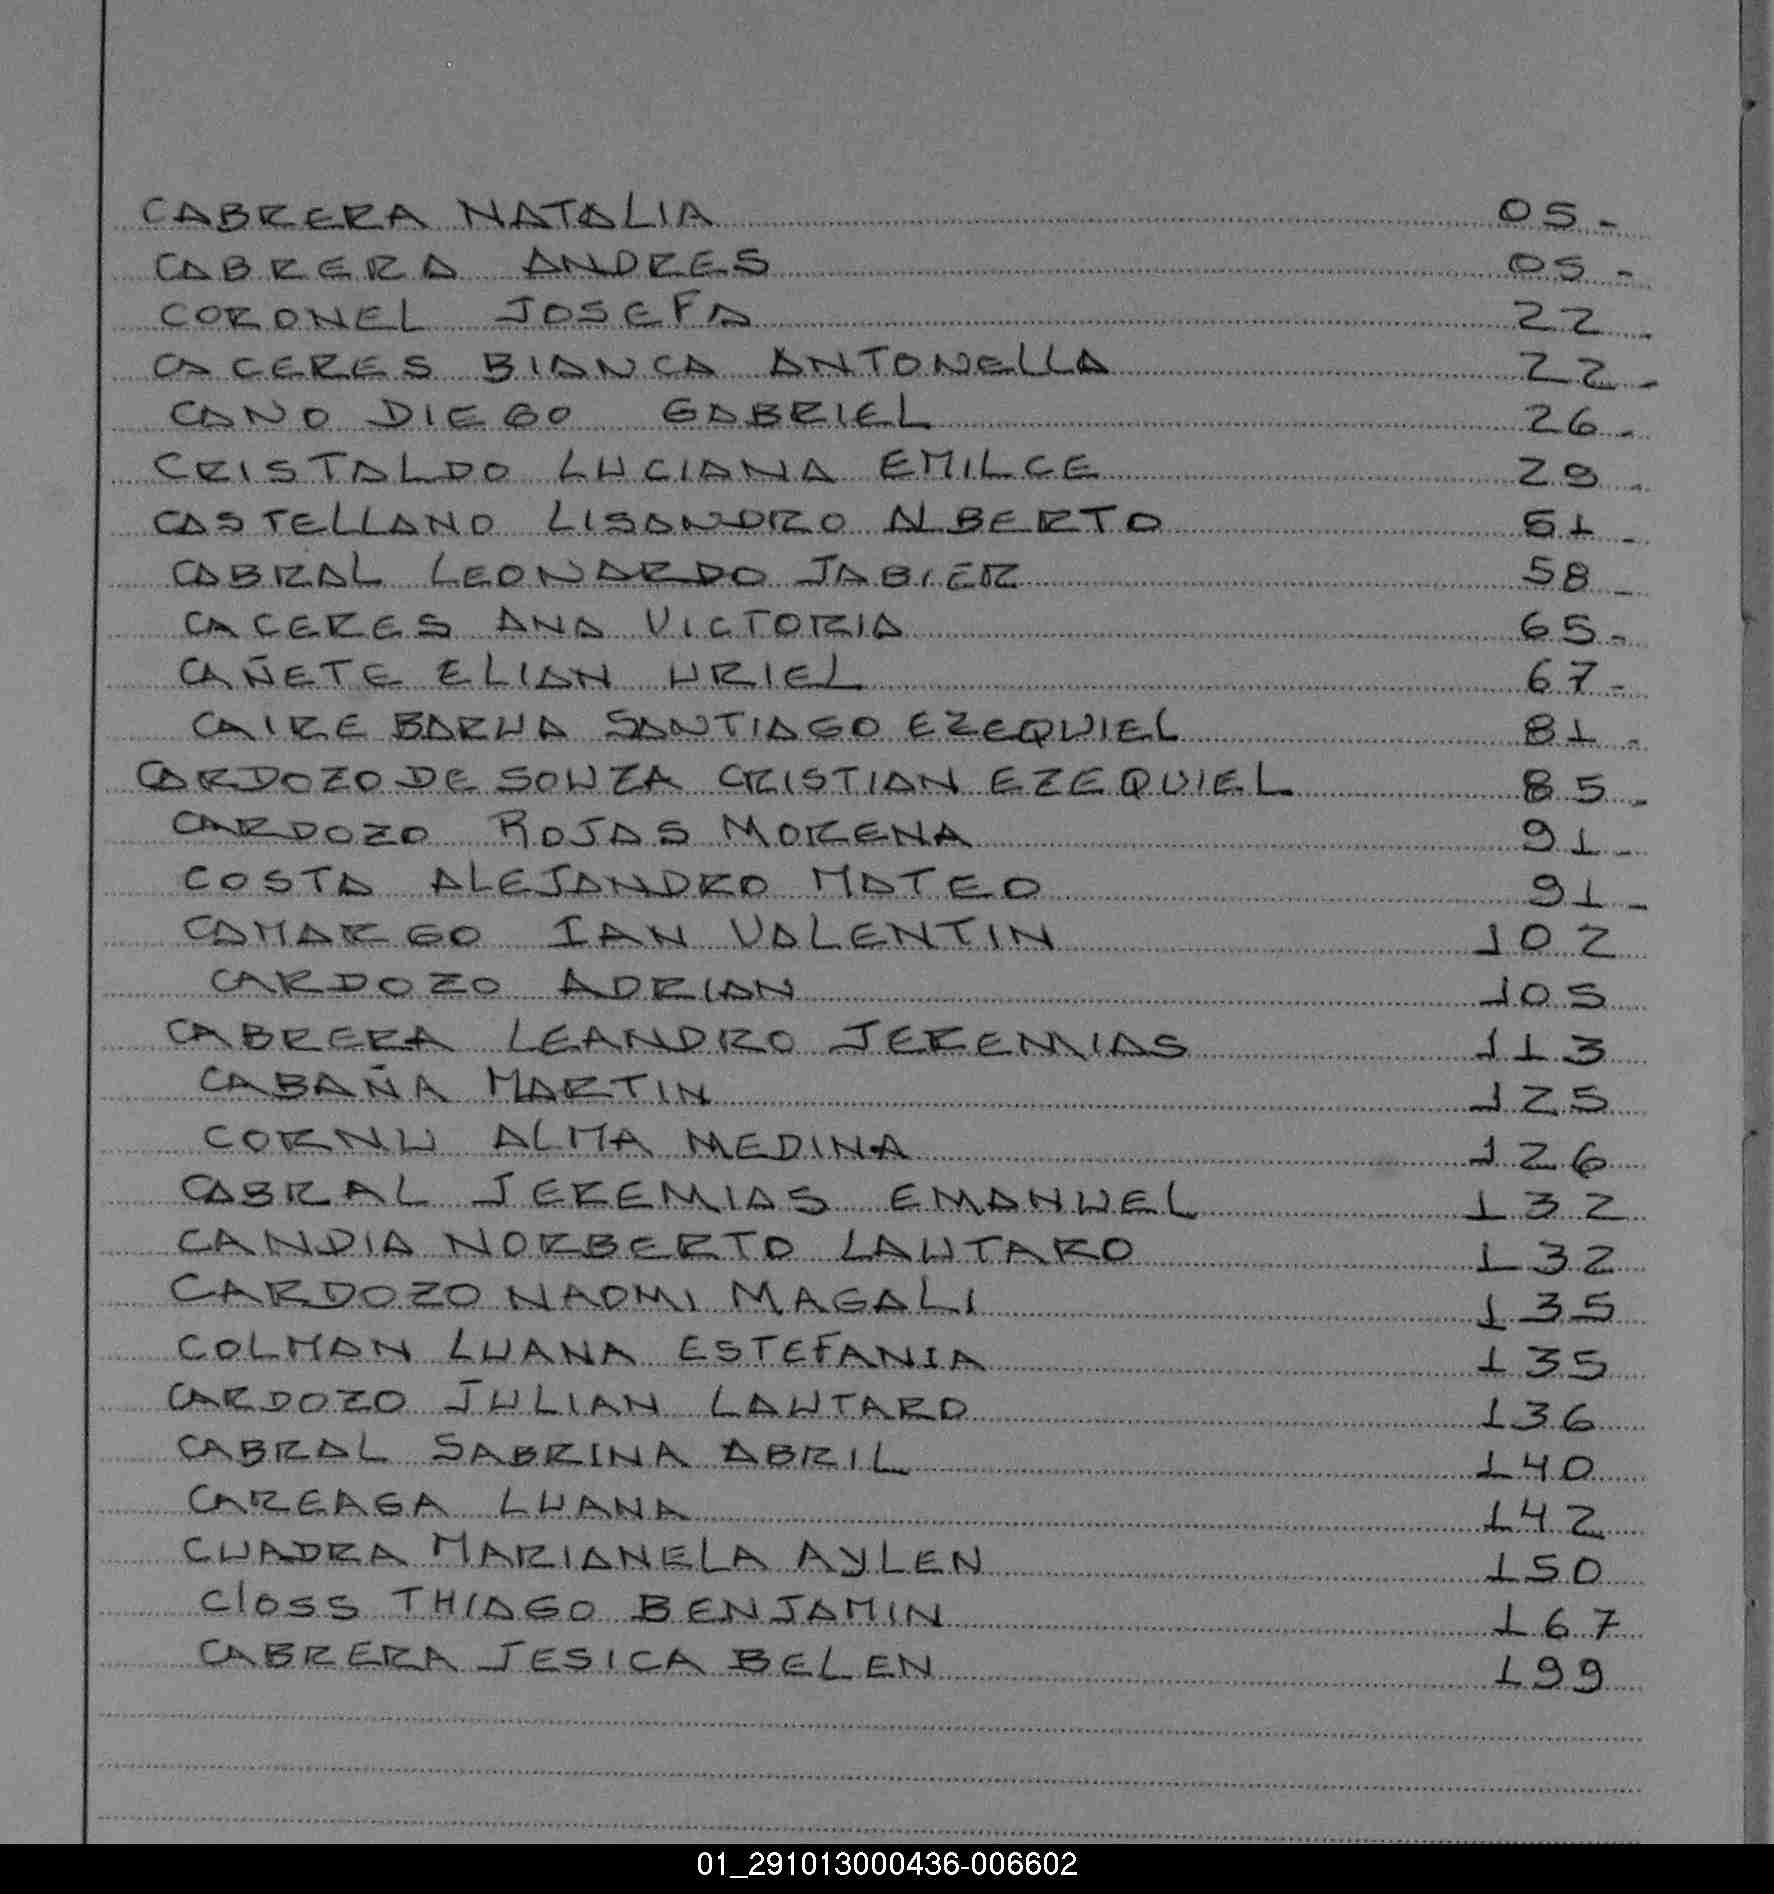 CABRERA NATALIA 05-
CABRERA ANDRES 05-
CORONEL JOSEFA 22-
CACERES BIANCA ANTONELLA 22-
CANO DIEGO GABRIEL 26-
CRISTALDO LUCIANA EMILCE 29-
CASTELLANO LISANDRO ALBERTO 51-
CABRAL LEONARDO JABIER 58-
CACERES ANA VICTORIA 65-
CAÑETE ELIAN URIEL 67-
CAIRE BARUA SANTIAGO EZEQUIEL 81-
CARDOZO DE SOUZA CRISTIAN EZEQUIEL 85-
CARDOZO ROJAS MORENA 91-
COSTA ALEJANDRO MATEO 91-
CAMARGO IAN VALENTIN 102
CARDOZO ADRIAN 105
CABRERA LEANDRO JEREMIAS 113
CABAÑA MARTIN 125
CORNU ALMA MEDINA 126
CABRAL JEREMIAS EMANUEL 132
CANDIA NORBERTO LAUTARO 132
CARDOZO NAOMI MAGALI 135
COLMAN LUANA ESTEFANIA 135
CARDOZO JULIAN LAUTARO 136
CABRAL SABRINA ABRIL 140
CAREAGA LUANA 142
CUADRA MARIANELA AYLEN 150
CLOSS THIAGO BENJAMIN 167
CABRERA JESICA BELEN 199
01_291013000436-006602